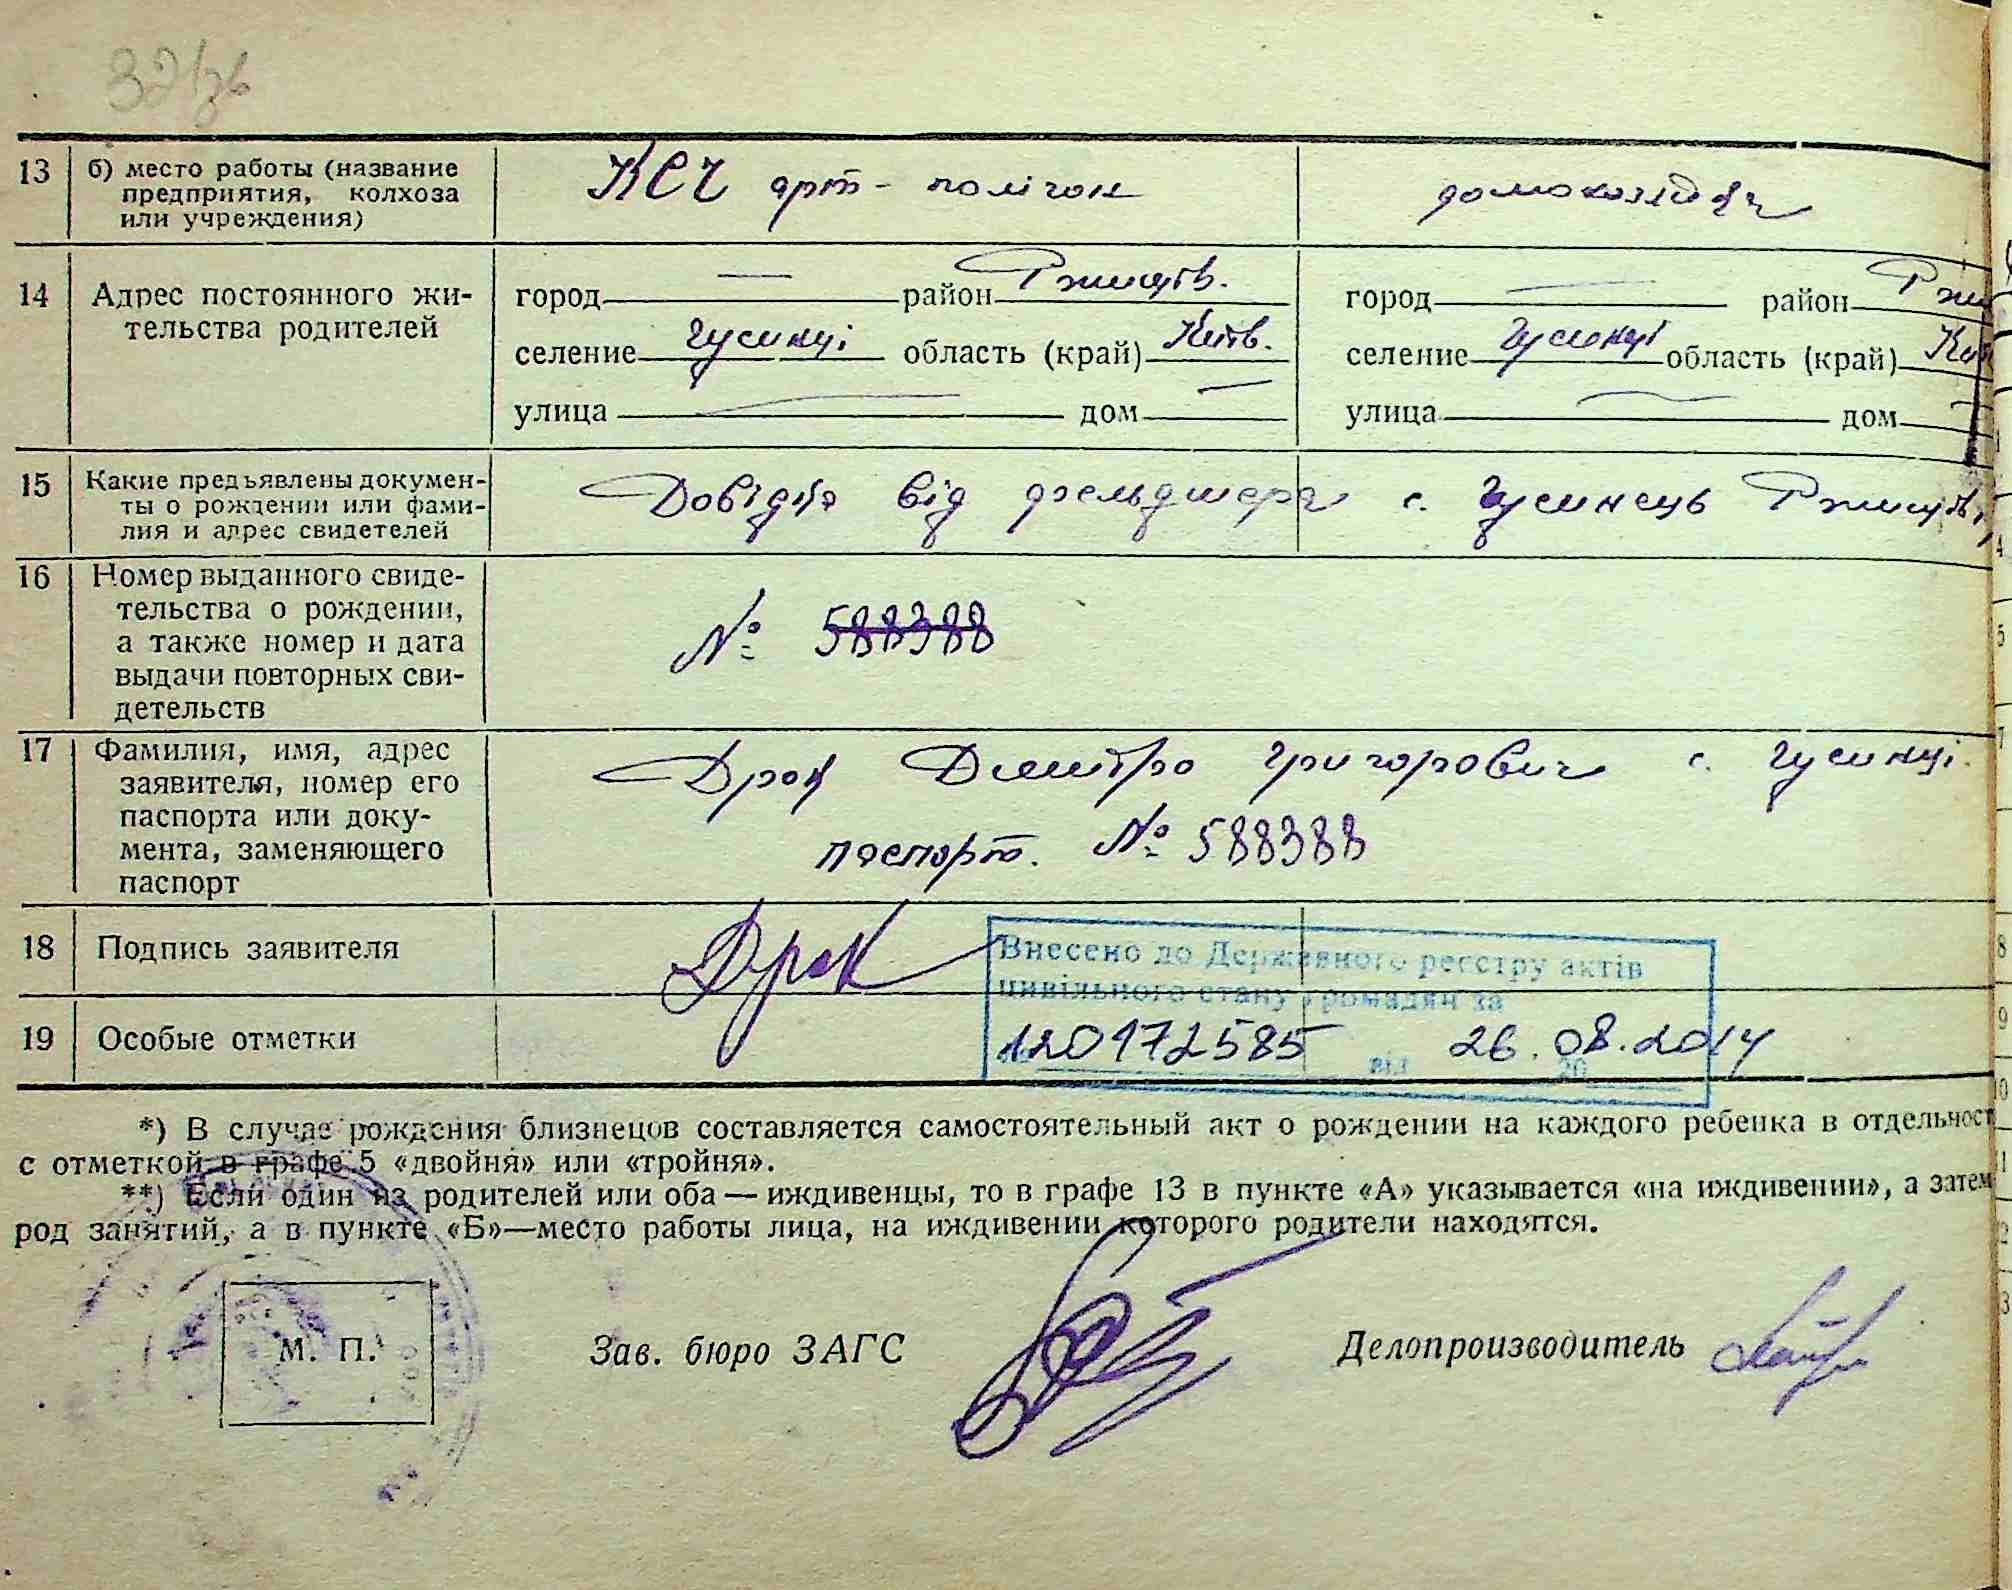 32/зв
13 б) место работы (название предприятия, колхоза или учреждения) КЕЧ арт-полігон домохазяйка
14 Адрес постоянного жительства родителей
город — район Ржищів. город — район Ржи
селение Гусинці область (край) Київ. селение Гусинці область (край) Киї
улица — дом — улица — дом
15 Какие предъявлены документы о рождении или фамилия и адрес свидетелей Довідка від фельдшера с. Гусинець Ржищів.
16 Номер выданного свидетельства о рождении, а также номер и дата выдачи повторных свидетельств № 588388
17 Фамилия, имя, адрес заявителя, номер его паспорта или документа, заменяющего паспорт Дрок Дмитро Григорович с. Гусинці.
паспорт. № 588388
18 Подпись заявителя Дрок
Внесено до Державного реєстру актів
цивільного стану громадян за
19 Особые отметки
№ 120172585 від 26.08.2014
*) В случае рождения близнецов составляется самостоятельный акт о рождении на каждого ребенка в отдельност
с отметкой в графе 5 «двойня» или «тройня».
**) Если один из родителей или оба — иждивенцы, то в графе 13 в пункте «А» указывается «на иждивении», а затем
род занятий, а в пункте «Б»—место работы лица, на иждивении которого родители находятся.
М. П. Зав. бюро ЗАГС Делопроизводитель